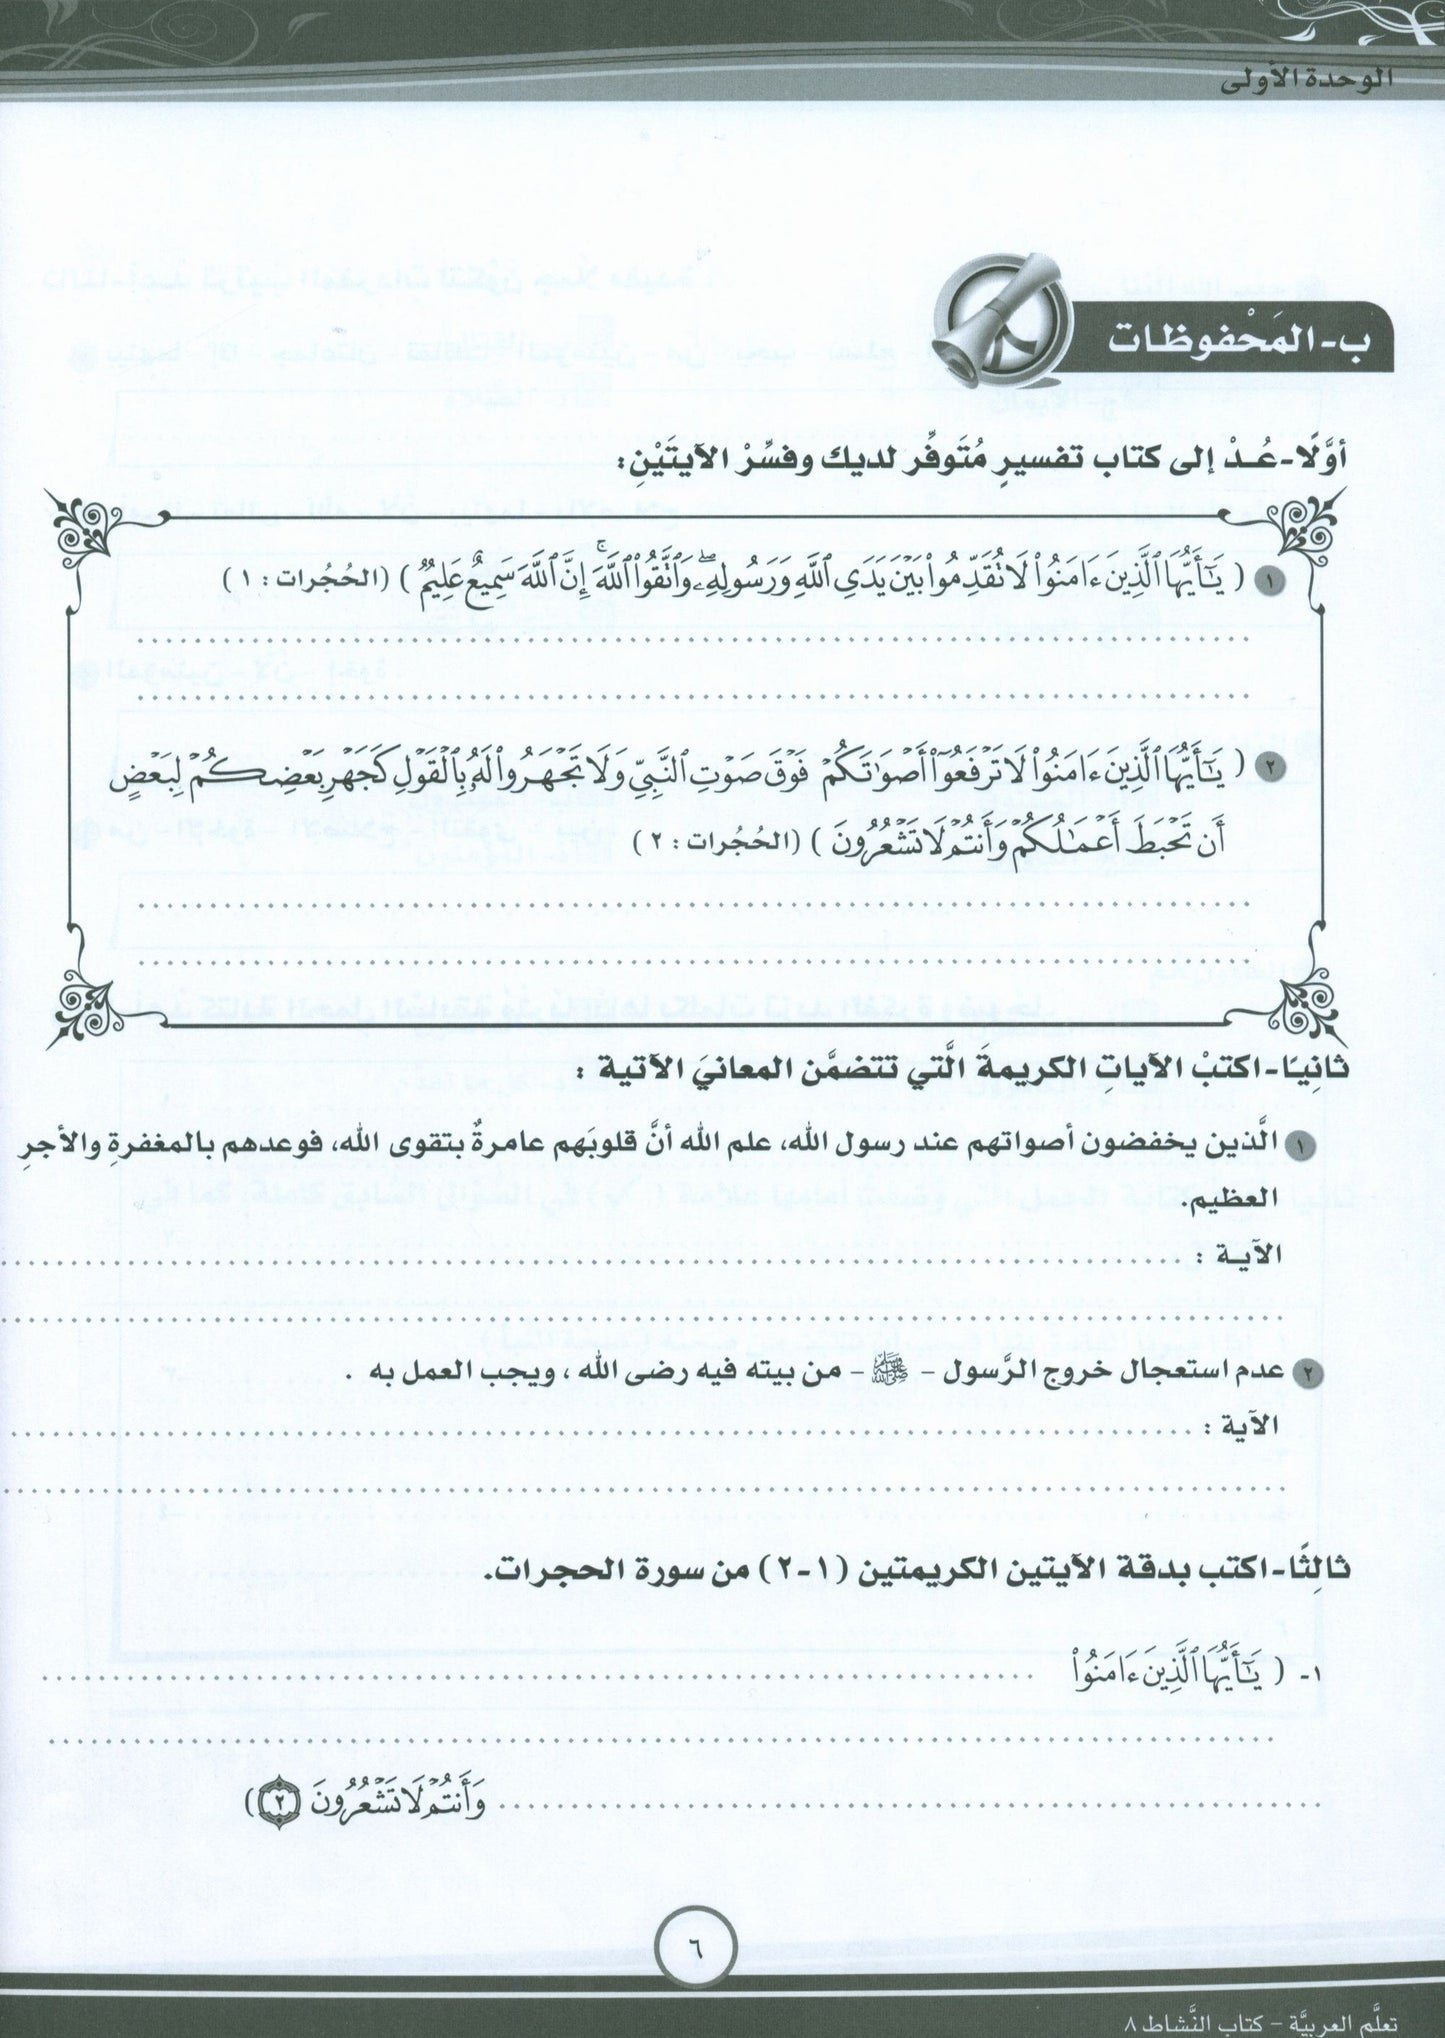 الوحدة الأولى
ب-المَحْفوظات
أوَّلًا-عُـدْ إلى كتاب تفسيرٍ مُتَوفِّر لديك وفسِّرْ الآيتَيْنِ:
١ ( يَٰٓأَيُّهَا ٱلَّذِينَ ءَامَنُوا۟ لَا تُقَدِّمُوا۟ بَيْنَ يَدَىِ ٱللَّهِ وَرَسُولِهِۦۖ وَٱتَّقُوا۟ ٱللَّهَۚ إِنَّ ٱللَّهَ سَمِيعٌ عَلِيمٌ ) (الحُجُرات : ١ )
٢ ( يَٰٓأَيُّهَا ٱلَّذِينَ ءَامَنُوا۟ لَا تَرْفَعُوٓا۟ أَصْوَٰتَكُمْ فَوْقَ صَوْتِ ٱلنَّبِىِّ وَلَا تَجْهَرُوا۟ لَهُۥ بِٱلْقَوْلِ كَجَهْرِ بَعْضِكُمْ لِبَعْضٍ
أَن تَحْبَطَ أَعْمَٰلُكُمْ وَأَنتُمْ لَا تَشْعُرُونَ ) (الحُجُرات : ٢ )
ثانِيًا-اكتبْ الآياتِ الكريمةَ الَّتي تتضمَّن المعانيَ الآتية :
١ الَّذين يخفضون أصواتهم عند رسول الله، علم الله أنَّ قلوبَهم عامرةٌ بتقوى الله، فوعدهم بالمغفرةِ والأجرِ
العظيم.
الآيـة :
٢ عدم استعجال خروج الرَّسول - ﷺ - من بيته فيه رضى الله ، ويجب العمل به .
الآية :
ثالِثًا-اكتب بدقة الآيتين الكريمتين (١-٢) من سورة الحجرات.
١- ( يَٰٓأَيُّهَا ٱلَّذِينَ ءَامَنُوا۟
وَأَنتُمْ لَا تَشْعُرُونَ ٢ )
٦
تعلَّم العربيَّة - كتاب النَّشاط ٨